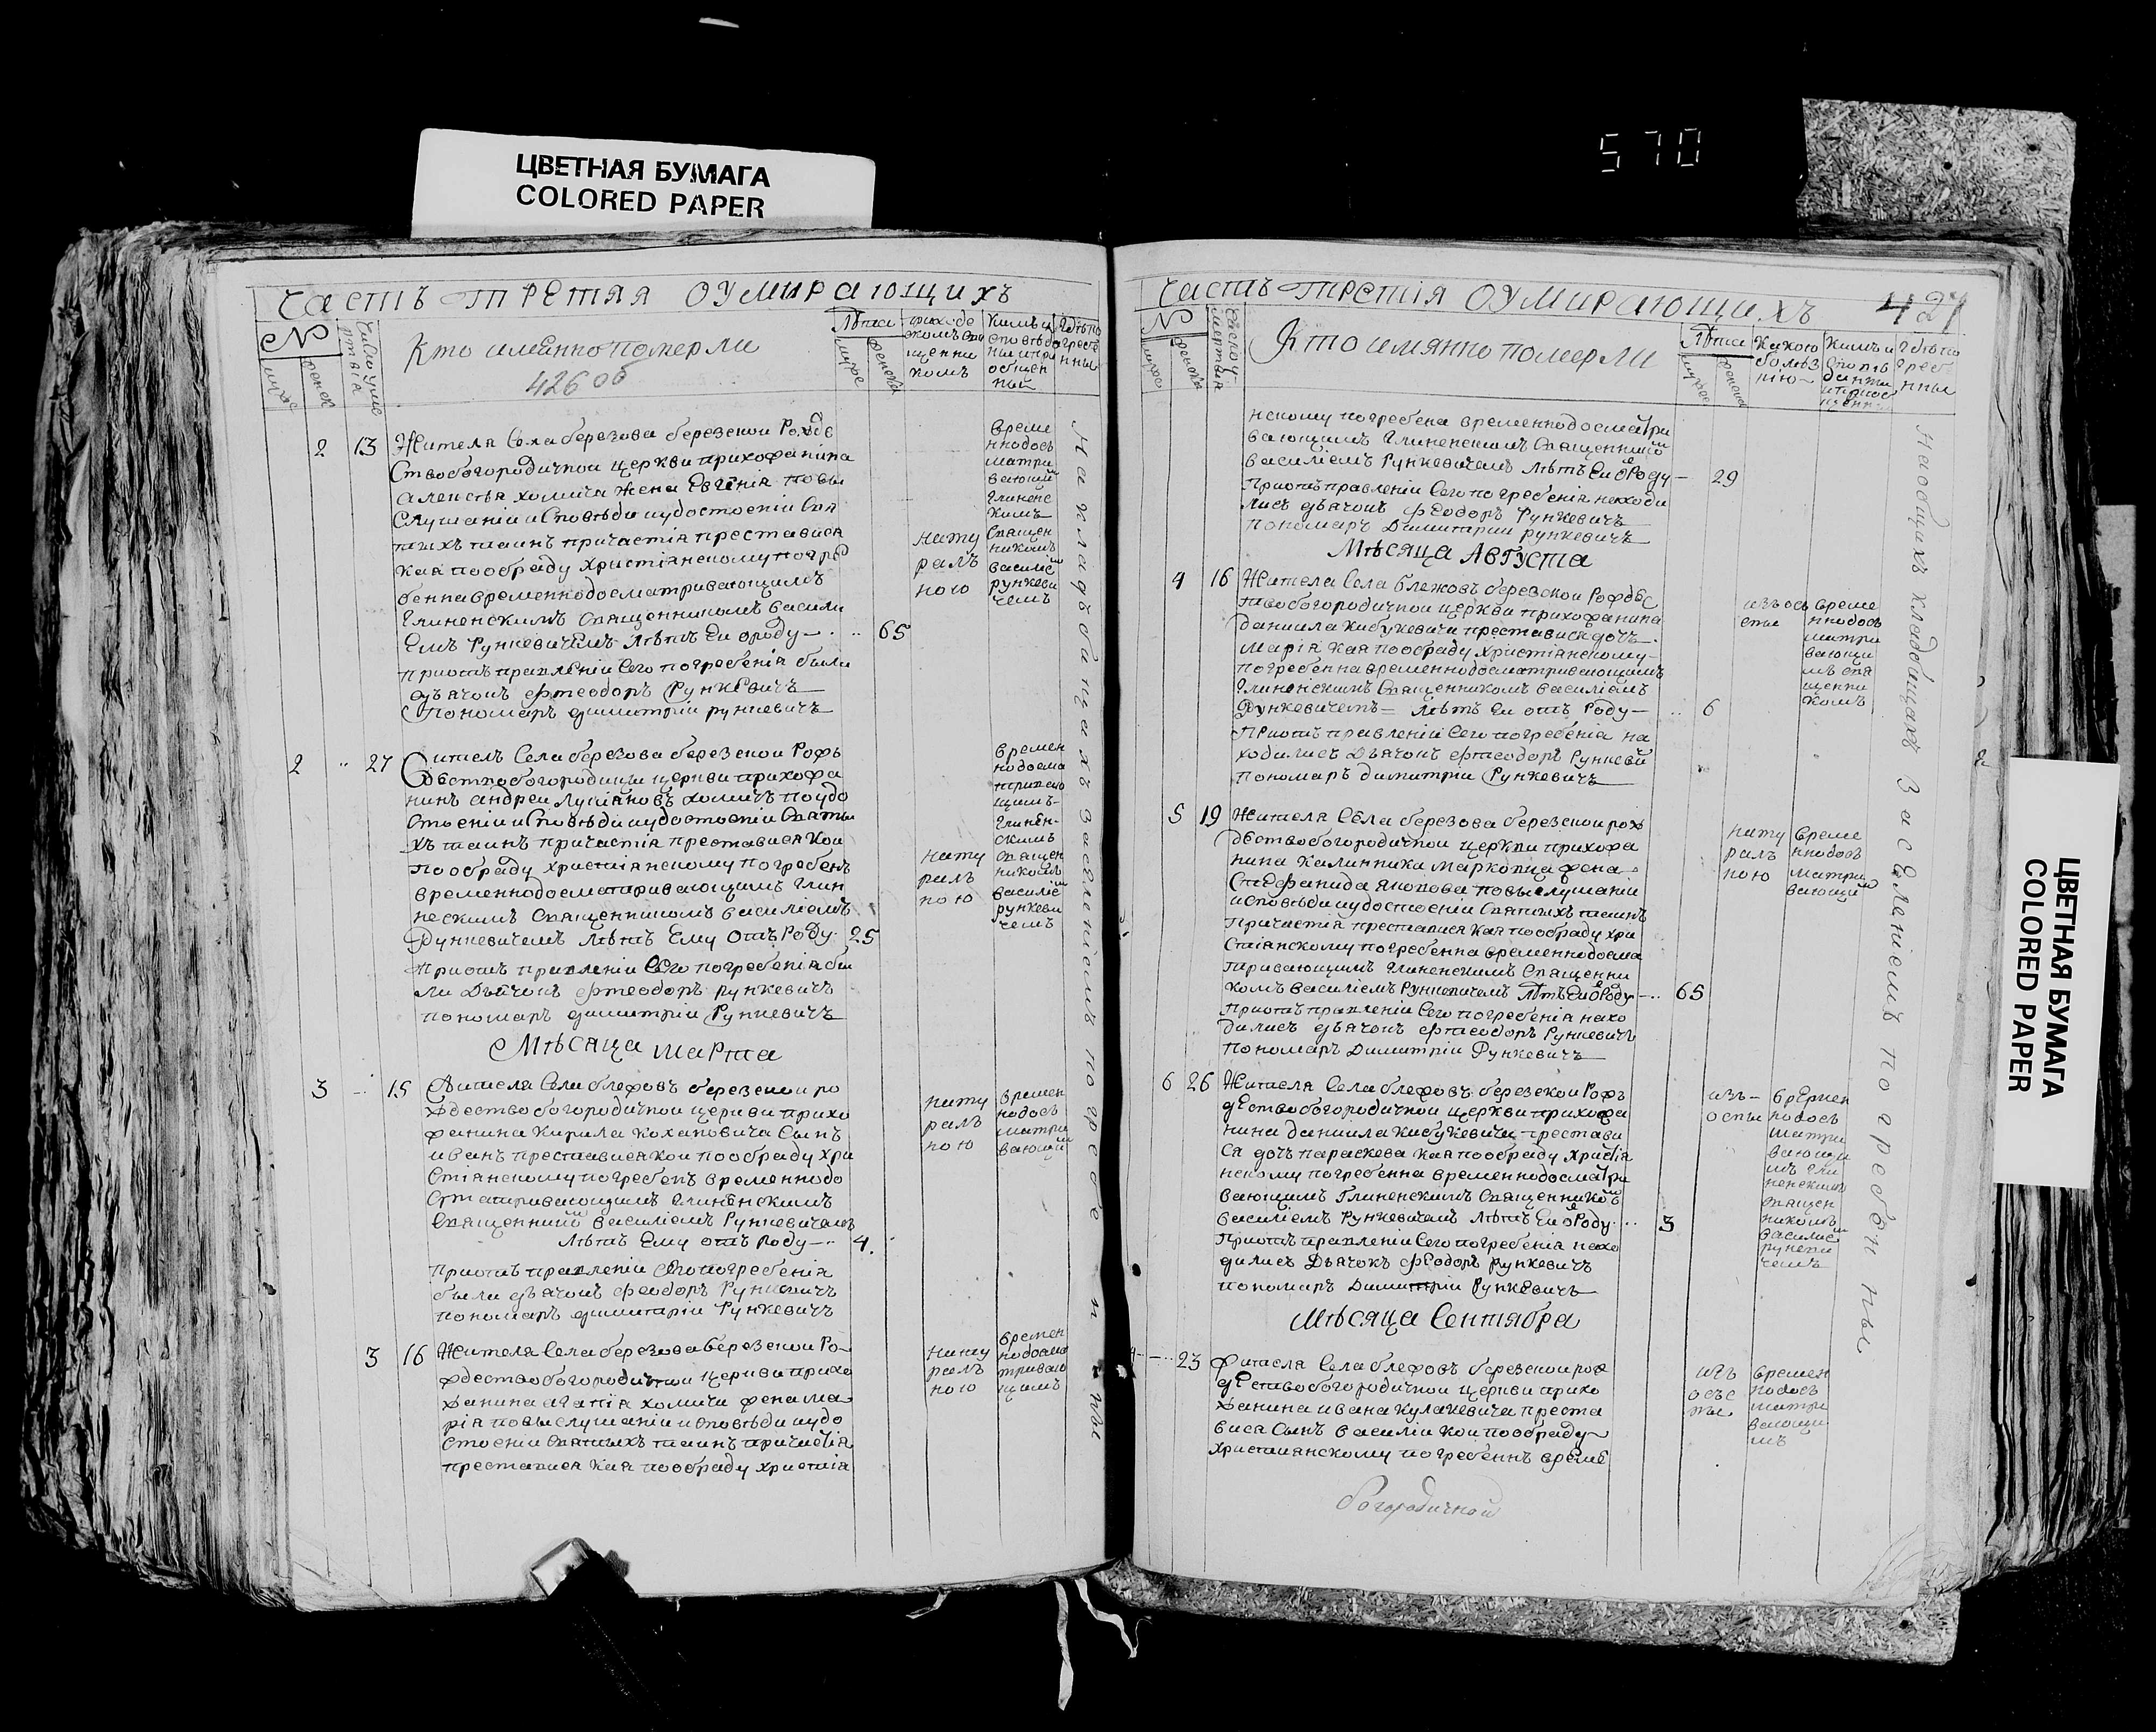 570
ЦВЕТНАЯ БУМАГА
COLORED PAPER
часть третяя оумирающихъ
№
Кто имянно померли
426 об
Лѣта
мужес
женск
2 13 Жителя Села березова березской Рожде
Ствобогородичной церкви прихожанина
алексѣя хомича жена Евгенія повы
Слушаніи исповѣди иудостоеніи Свя
тыхъ таинъ причастія преставися
кая пообряду христіанскому погре
бенна временнодосматривающимъ
Глиненскимъ Священникомъ васили
Емъ Рункевичемъ Лѣтъ Еи ѿроду 65
приотъправленіи Сего погребенія были
дьячокъ фтеодоръ Рункевичъ
Пономаръ димитріи рункевичъ
нату
ралъ
ною
време
ннодосъ
матри
вающим
Глиненс
кимъ
Священ
никомъ
василіем
рункеви
чемъ
2 27 Житель Села березова березской Рожъ
дествобогородицы церкви прихожа
нинъ андреи лукіяновъ хомичъ поудо
стоеніи исповѣди иудостоеніи святы
хъ таинъ причастія преставися кои
пообряду христіянскому погребенъ
временнодосматривающимъ глин
нескимъ Священникомъ василіемъ
Рункевичемъ лѣтъ Ему отъ Роду 25
Приотъ правленіи Сего погребенія бы
ли Дьячокъ фтеодоръ рункевичъ
пономаръ димитріи Рункевичъ
нату
ралъ
ною
времен
нодосма
триваю
щимъ
глинен-
скимъ
священ
никомъ
василіем
рункеви
чемъ
Мѣсяца марта
3 15 Жителя Села блежовъ березской ро
ждествобогородичной церкви прихо
жанина кирила кохановича Сынъ
иванъ преставися кои пообряду хри
стіянскому погребенъ временнодо
сматривающимъ глиненскимъ
Священником василіемъ Рункевичамъ
лѣтъ Ему отъ роду 4.
Приотъ правленіи Сего погребенія
были дьячокъ феодоръ Рункевичъ
пономаръ димитаріи Рункевичъ
нату
ралъ
ною
времен
нодосъ
матри
вающим
3 16 Жителя Села березова березской Ро-
ждествобогородичной церкви прихо
жанина агапія хомича жена ма
рія повыслушаніи исповѣди иудо
стоеніи святыхъ таинъ причастія
преставися кая пообряду христія
нату
ралъ
ною
времен
нодосма
триваю
щимъ
На кладъбищахъ заселеніемъ погребенны
часть третія оумирающихъ
427
№
Кто имянно померли
Лѣта
Какою
болѣз
нію
нскому погребена временнодосматри
вающимъ Глиненскимъ Священником
василіемъ Рункевичемъ лѣтъ Еи ѿ Роду 29
приотъправленіи Сего погребенія находи
лись дьячокъ феодоръ Рункевичъ
пономаръ Димитарии рункевичъ
Мѣсяца Августа
4 16 Жителя Села блежовъ березской Рождес
твобогородичной церкви прихожанина
даниила кибукевича преставися дочъ
марія кая пообряду христіянскому
погребенна временнодосматривающимъ
Глиненскимъ Священникомъ василіемъ
Рункевичемъ лѣтъ Еи отъ Роду 6
Приотъ правленіи Сего погребенія на
ходились Дьячокъ фтеодоръ Рункеви
пономаръ димитріи Рункевичъ
изъ ос
спы
време
ннодосъ
матри
вающи
мъ свя
щенни
комъ
5 19 Жителя Села березова березской рож
дствобогородичной церкви прихожа
нина калинника марковича жена
Стефанида якокова повыслушани
исповѣди иудостоеніи Святыхъ таинъ
Причастія преставися кая пообряду хри
стіанскому погребенна временнодосма
тривающимъ глиненскимъ Священни
комъ василіемъ Рункевичемъ лѣтъ Еи ѿ Роду 65
Приотъ правленіи Сего погребенія нахо
дились дьячокъ фтеодоръ Рункевичъ
пономаръ Димитріи Рункевичъ
нату
ралъ
ною
време
ннодосъ
матри
вающим
6 26 Жителя Села блежовъ березской Рожъ
дествобогородичной церкви прихожа
нина даниила кибукевича престави
ся дочъ параскева кая пообряду христія
нскому погребенна временнодосматри
вающимъ Глиненскимъ Священникомъ
василіемъ Рункевичамъ лѣтъ Еи ѿ Роду 3
Приотъ правленіи Сего погребенія нахо
дились Дьячокъ феодоръ рункевичъ
пономаръ Димитріи Рункевичъ
изъ-
оспы
времен
нодосъ
матри
вающи
мъ гли
ненскимъ
Священ
никомъ
василіем
рункеви
чемъ
Мѣсяца Сентября
4 23 Жителя Села блежовъ березской рож
дествобогородичной церкви прихо
жанина ивана кулакевича преста
вися Сынъ василіи кои пообряду
христианскому погребеннъ време
времен
нодосъ
матри
вающи
мъ
Наобщихъ кладбищахъ заселеніемъ погребенны
богородичной
ЦВЕТНАЯ БУМАГА
COLORED PAPER